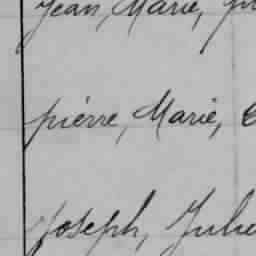 Jean, Marie,
pierre, Marie,
Joseph, Jules